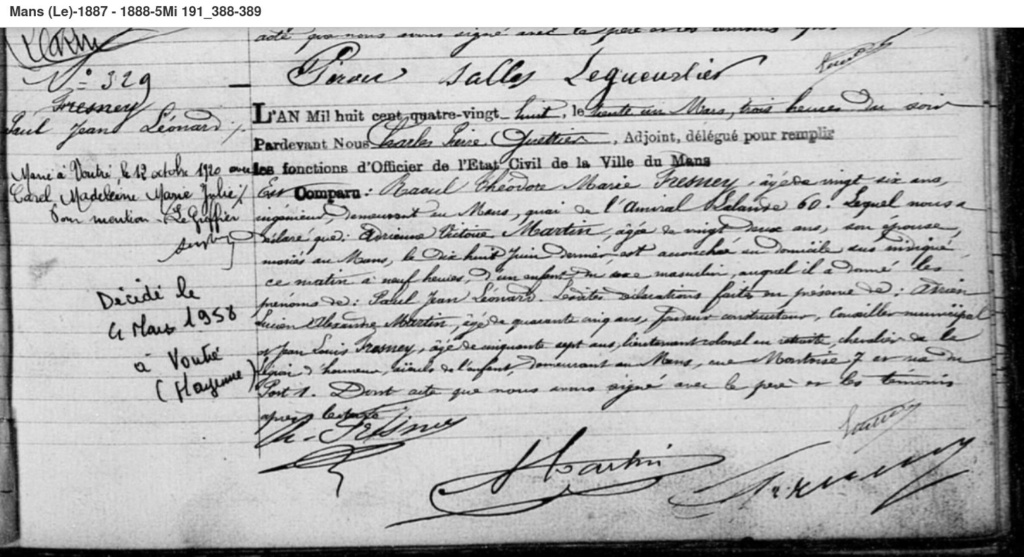 Mans (Le)-1887 - 1888-5Mi 191_388-389
acte que nous avons signé avec le père et les témoins
N° 329
Fresney
Paul Jean Léonard
Marié à Voutré le 12 octobre 1920 avec
Carel, Madeleine Marie Julie
Dont mention. Le Greffier
Décédé le
4 Mars 1958
à Voutré
(Mayenne)
Piron Salles Lequeurlier
L'AN Mil huit cent quatre-vingt huit, le trente un Mars, trois heures du soir
Pardevant Nous Charles Guettier, Adjoint, délégué pour remplir
les fonctions d'Officier de l'Etat Civil de la Ville du Mans
Est Comparu: Raoul Théodore Marie Fresney, âgé de vingt six ans,
ingénieur demeurant au Mans, quai de l'Amiral Lalande 60. Lequel nous a
déclaré que: Adrienne Victoire Martin, âgée de vingt deux ans, son épouse,
mariés au Mans, le dix huit Juin dernier, est accouchée en domicile sus indiqué
ce matin à neuf heures, d'un enfant du sexe masculin, auquel il a donné les
prénoms de: Paul Jean Léonard. Lesdites déclarations faites en présence de:
Lucien Alexandre Martin, âgé de quarante cinq ans, constructeur, Conseiller municipal
et Jean Louis Fresney, âgé de cinquante sept ans, lieutenant colonel en retraite, chevalier de la
légion d'honneur, aïeuls de l'enfant, demeurant au Mans, rue 7 et rue du
Port 1. Dont acte que nous avons signé avec le père et les témoins
après lecture
Fresney
Martin
Fresney